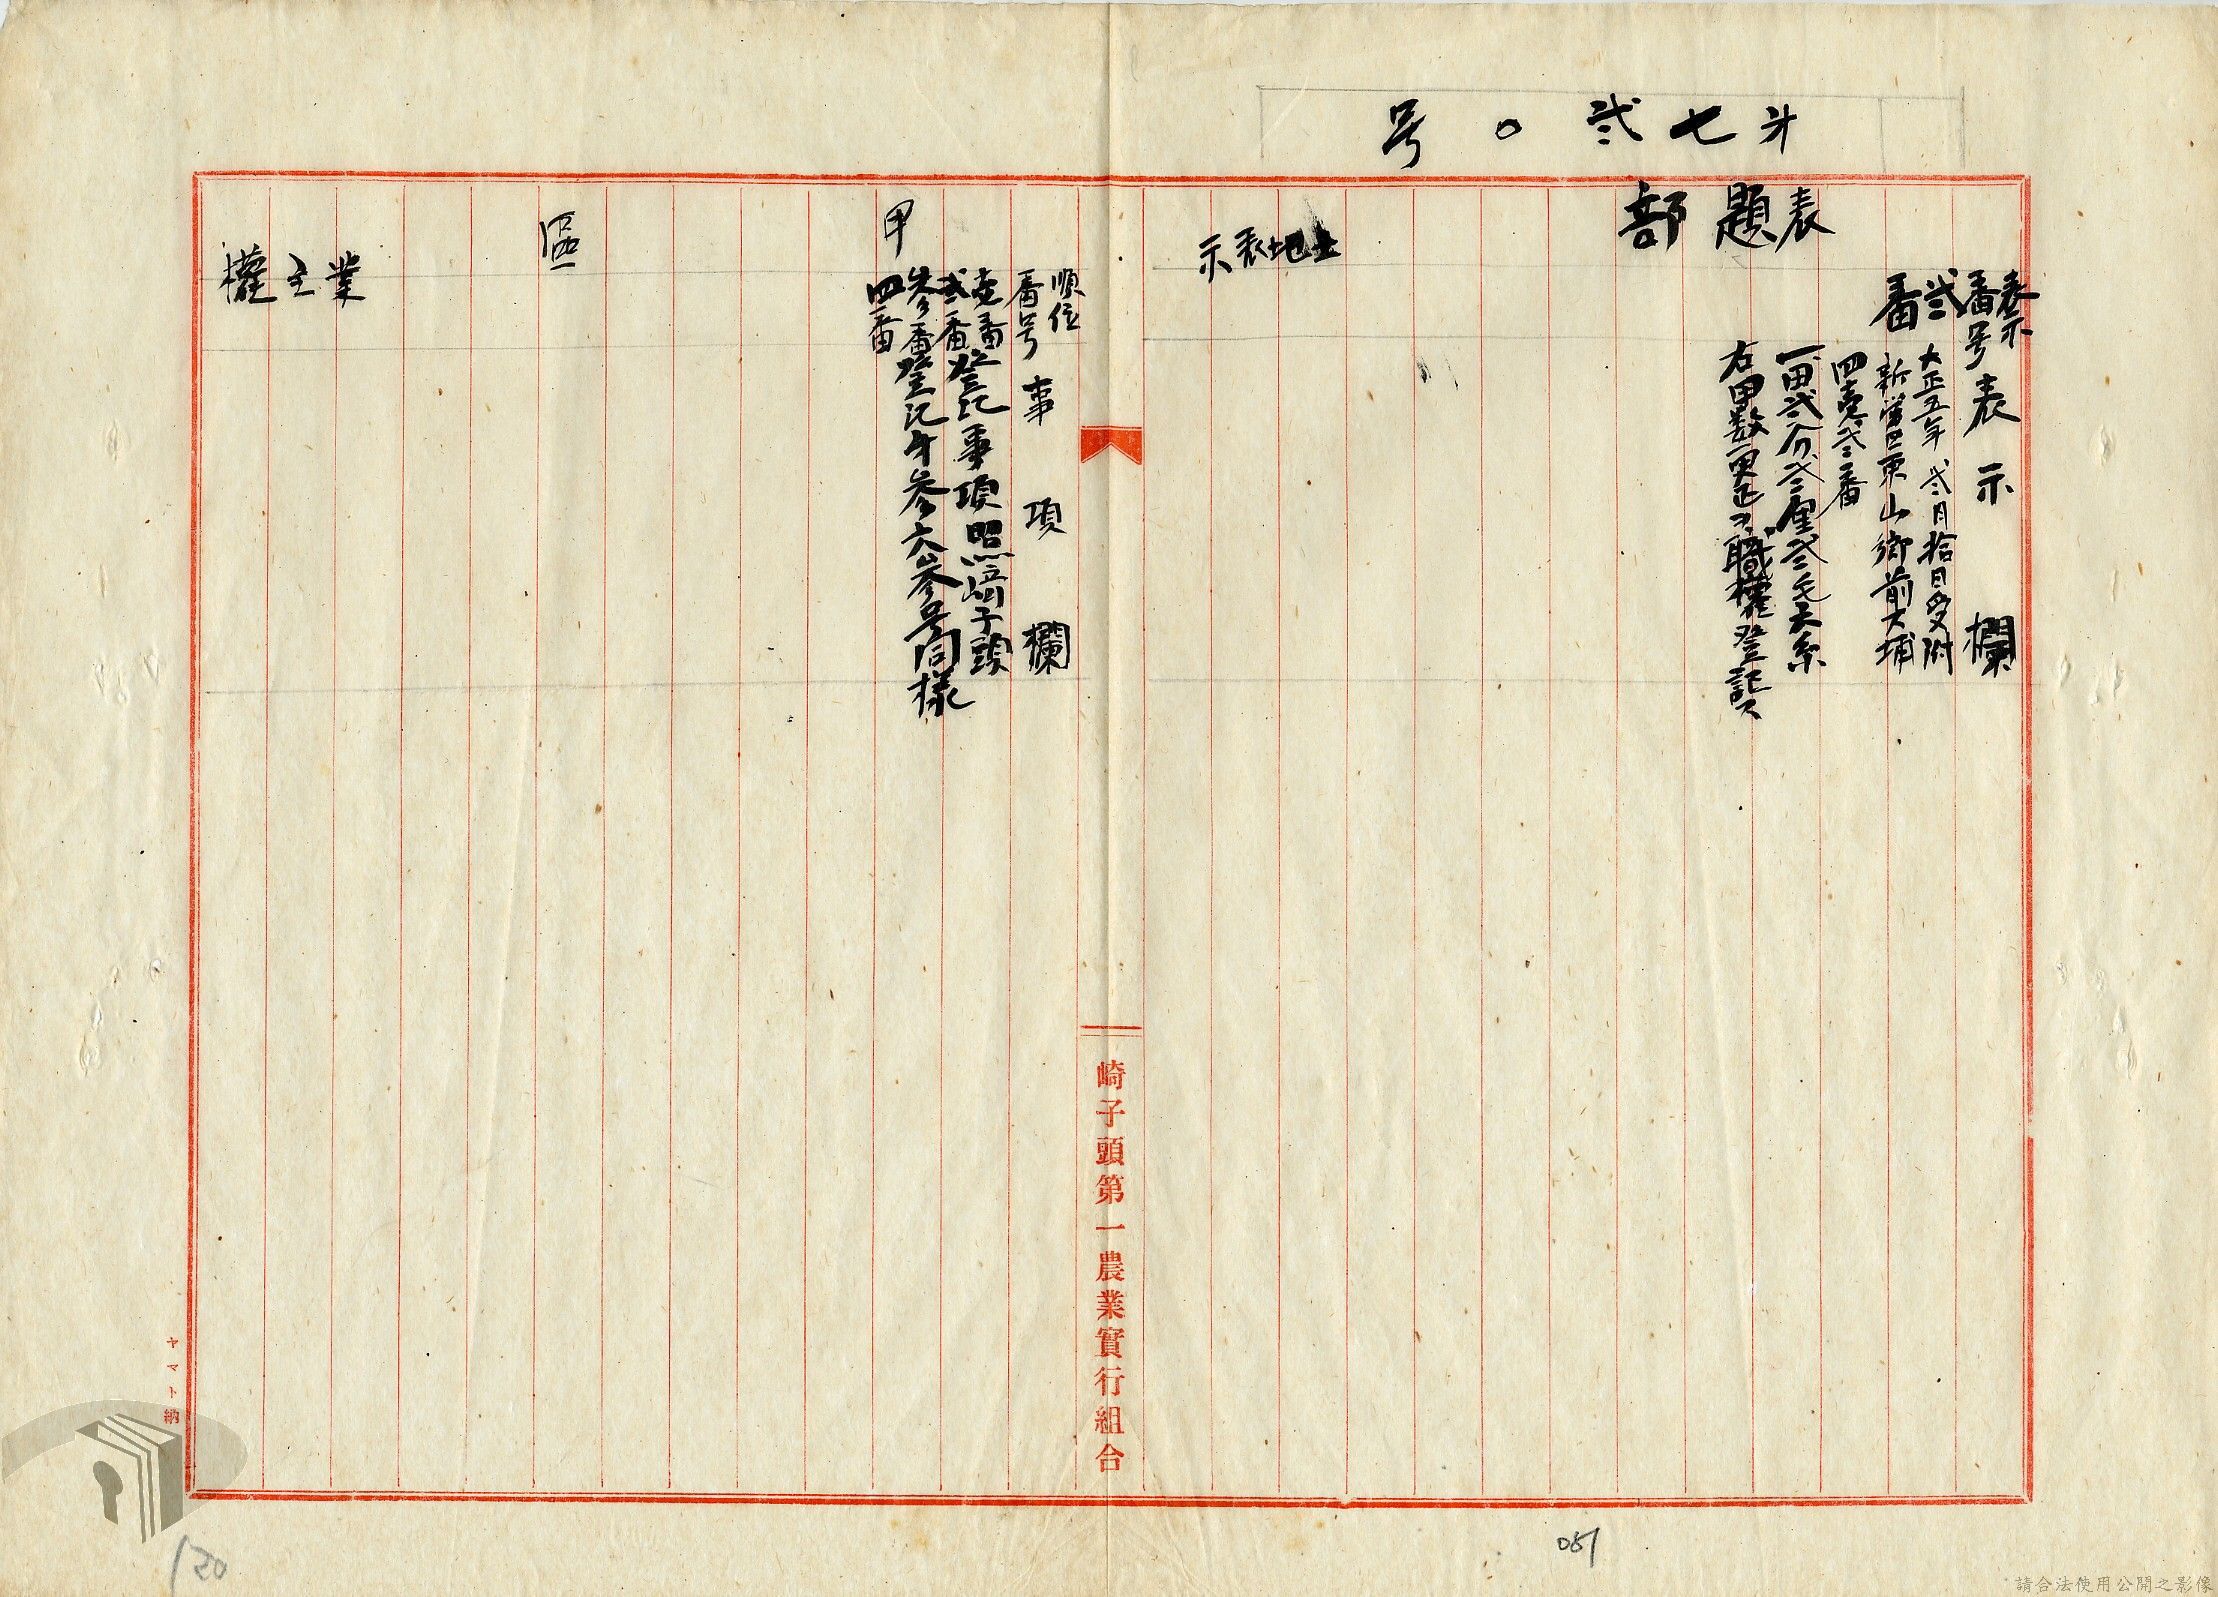 才七弐〇号
表題部
表示
番号表示欄
弐番
大正五年弐月拾日受附
新營區東山鄉前大埔
四壱弐番
一、田弐分弐厘弐毛五糸
右甲数更正ヲ職權登記ス
土地表示
順位
番号事項欄
壱番
弐番登記事項照﨑子頭
參番登記才參六參号同樣
四番
甲
區
業主權
崎子頭第一農業實行組合
ヤマト納
051
120
請合法使用公開之影像